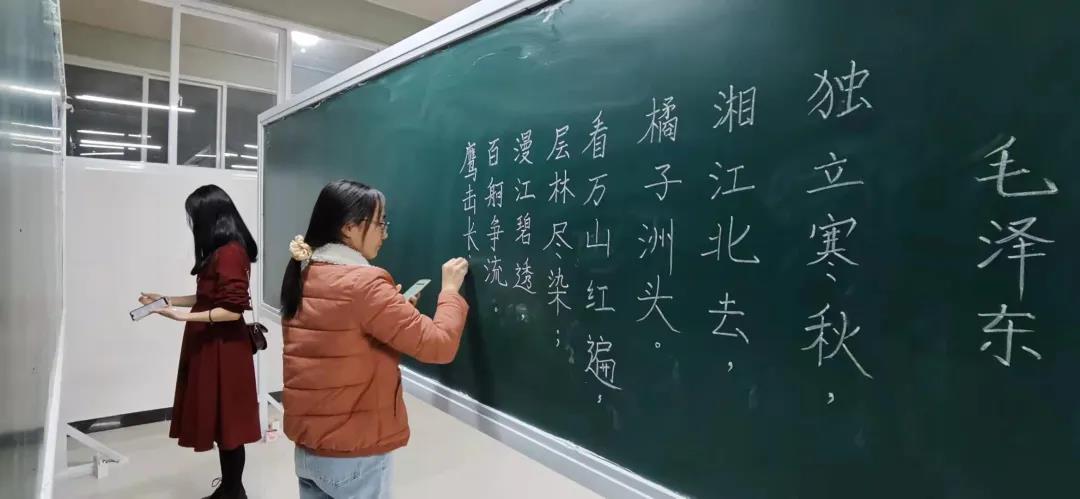 毛泽东
独立寒秋，
湘江北去，
橘子洲头。
看万山红遍，
层林尽染；
漫江碧透，
百舸争流。
鹰击长